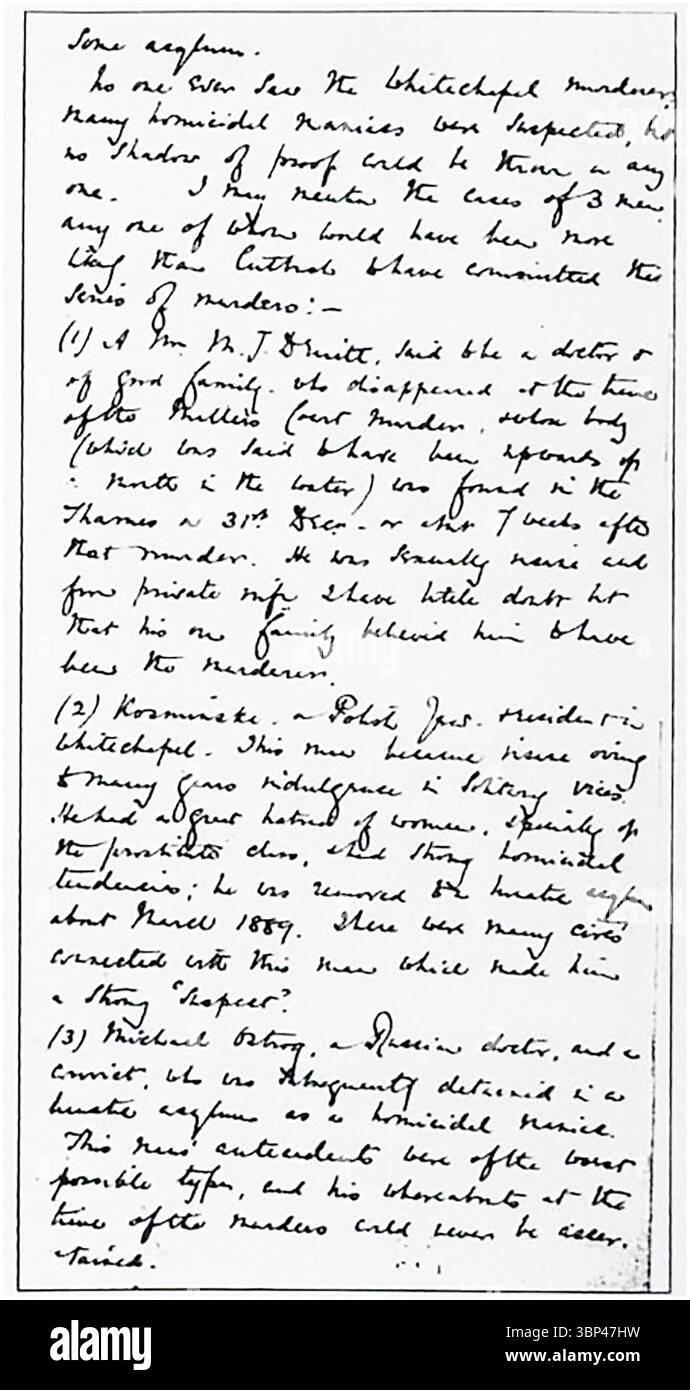 some asylum.
No one ever saw the Whitechapel murderer,
many homicidal maniacs were suspected, but
no shadow of proof could be thrown on any
one. I may mention the cases of 3 men,
any one of whom would have been more
likely than Cutbush to have committed this
series of murders:—
(1) A Mr. M. J. Druitt, said to be a doctor &
of good family. who disappeared at the time
of the Miller's Court Murder, whose body
(which was said to have been upwards of
a month in the water) was found in the
Thames on 31st Decr. - or abt 7 weeks after
that murder. He was sexually insane and
from private inf. I have little doubt but
that his own family believed him to have
been the murderer.
(2) Kosminski. a Polish Jew. & resident in
Whitechapel. This man became insane owing
to many years indulgence in solitary vices.
He had a great hatred of women, specially of
the prostitute class, & had strong homicidal
tendencies; he was removed to a lunatic asylum
about March 1889. There were many circs
connected with this man which made him
a strong "suspect".
(3) Michael Ostrog, a Russian doctor, and a
convict, who was subsequently detained in a
lunatic asylum as a homicidal maniac.
This man's antecedents were of the worst
possible type, and his whereabouts at the
time of the murders could never be ascer-
-tained.
alamy
Image ID: 3BP47HW
www.alamy.com